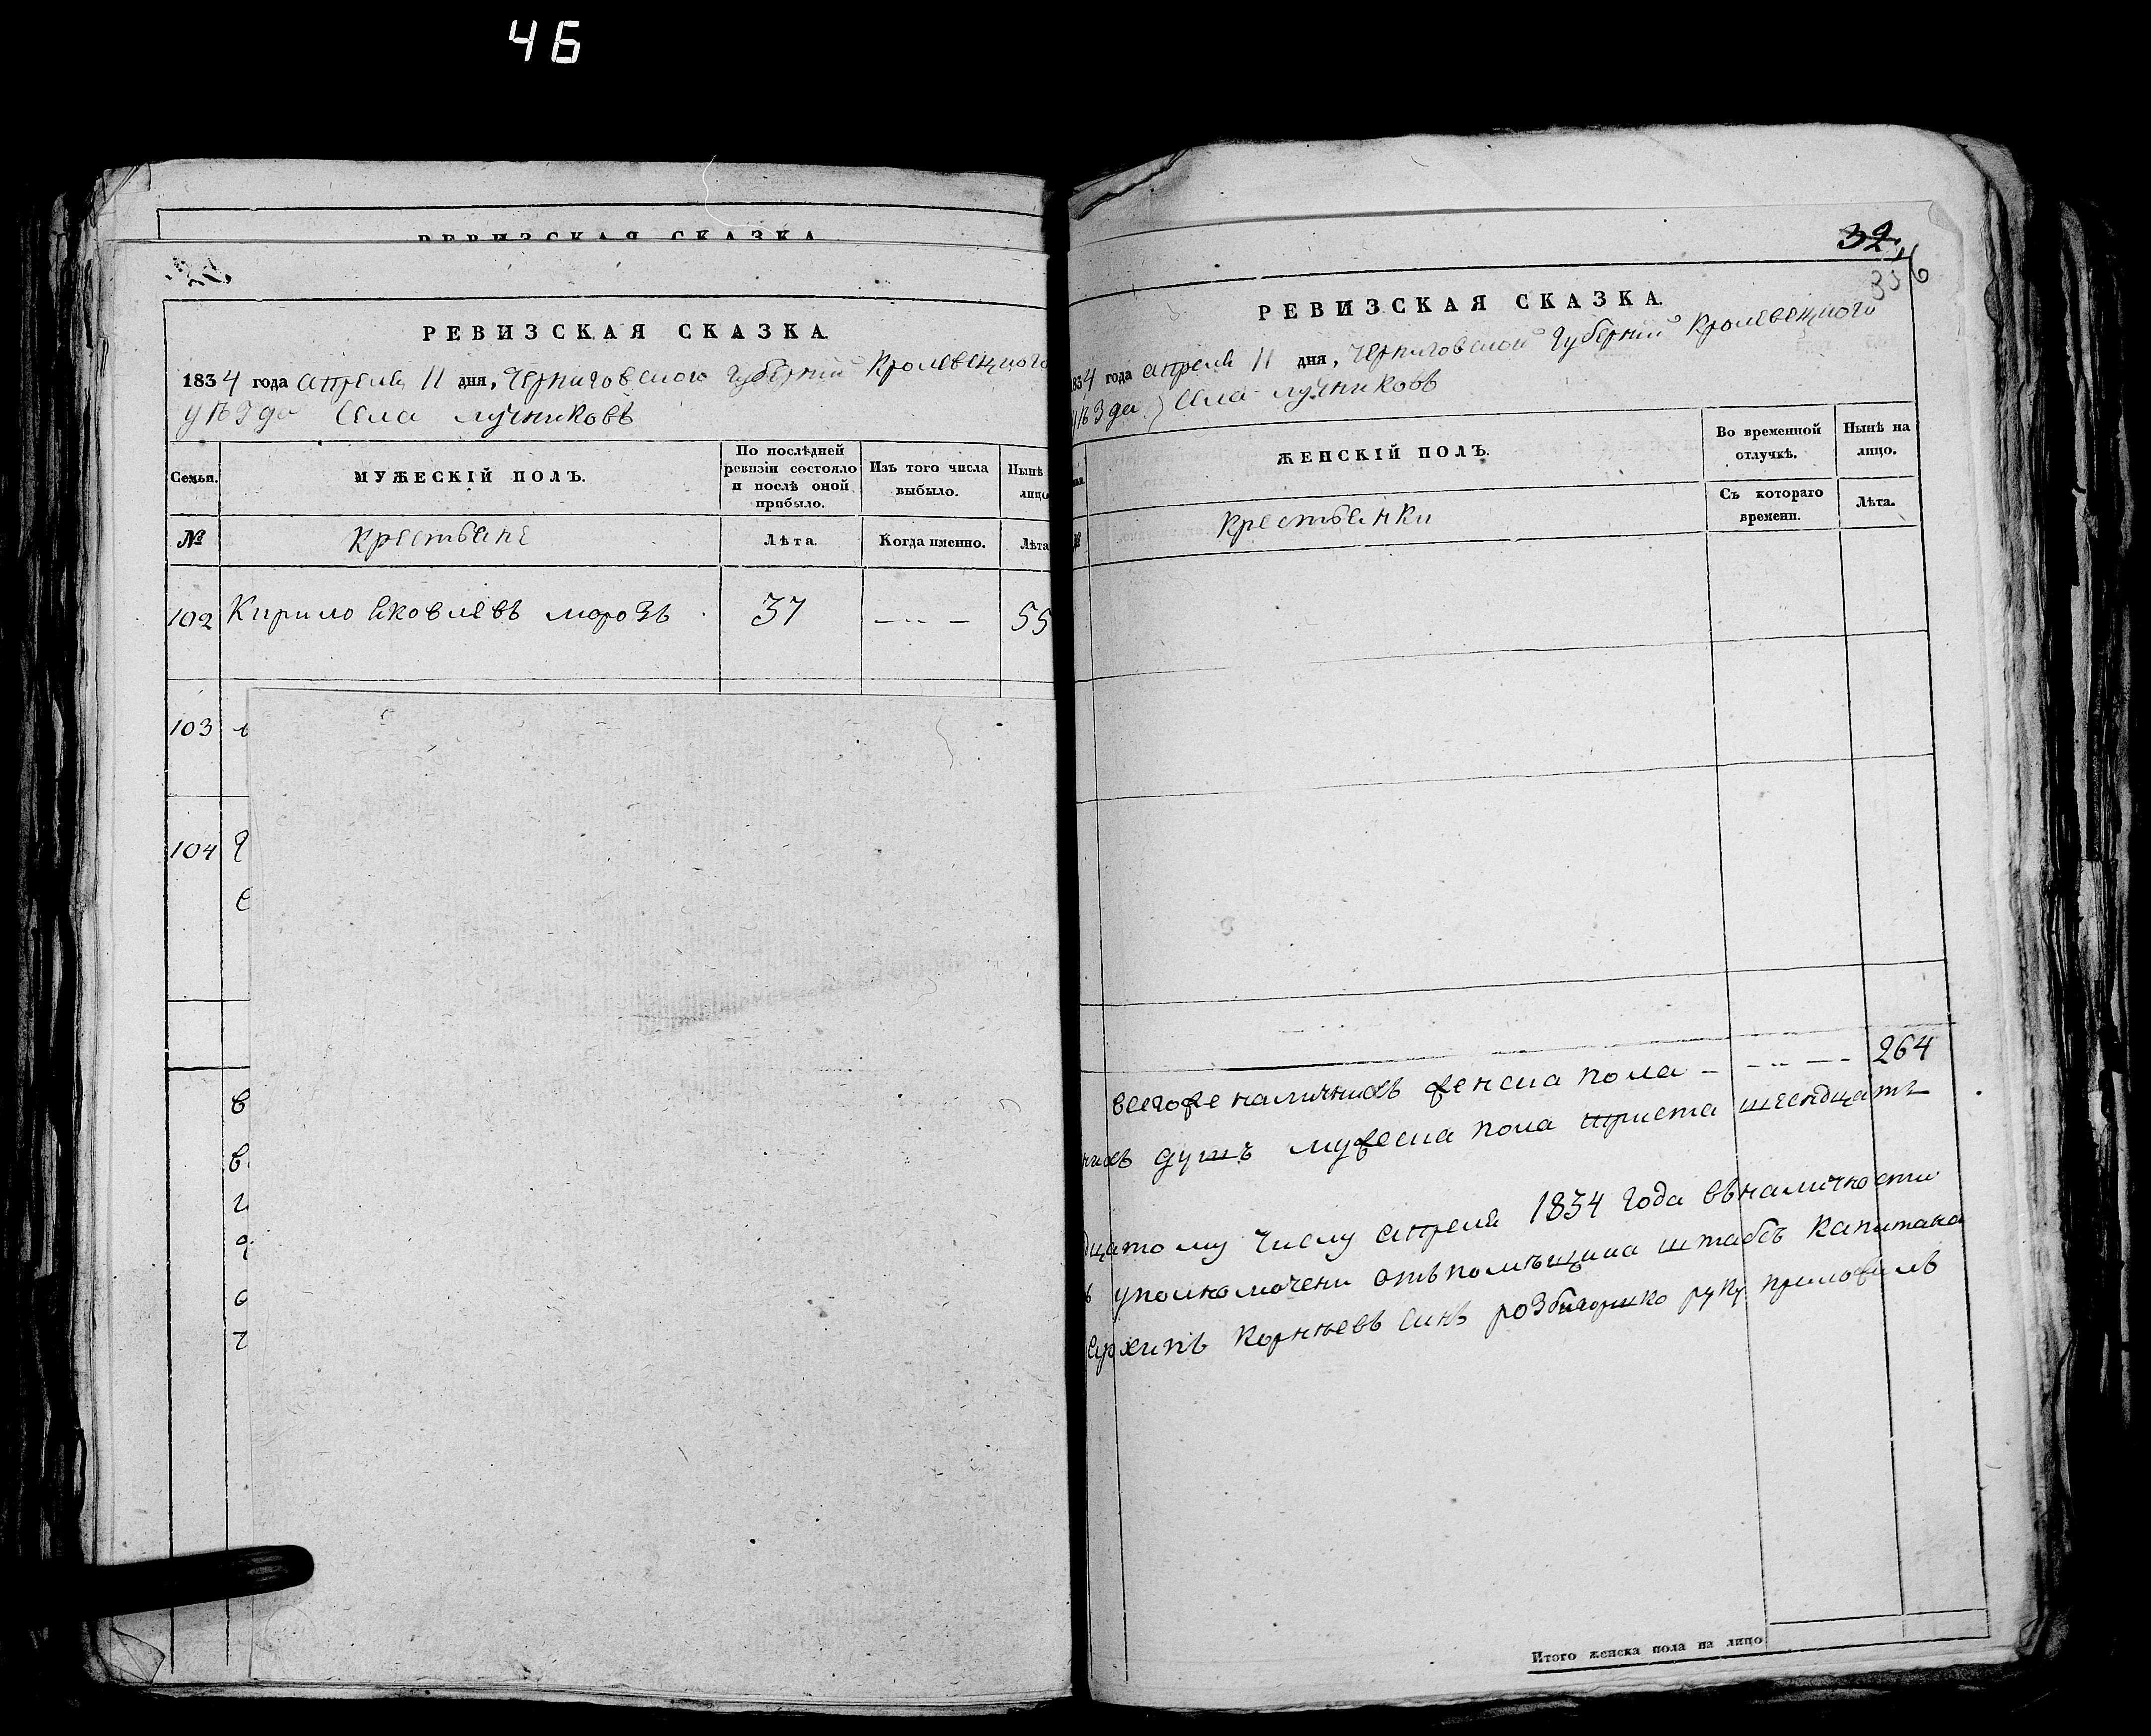 46
РЕВИЗСКАЯ СКАЗКА
РЕВИЗСКАЯ СКАЗКА.
1834 года апреля 11 дня, Черниговского Губернии Кролевецкого
уѣзда Села Лучниковъ
Семьи.
МУЖЕСКІЙ ПОЛЪ.
По послѣдней ревизіи состояло и послѣ оной прибыло.
Изъ того числа выбыло.
Нынѣ
лицо
№
Крестьяне
Лѣта.
Когда именно.
Лѣта
102 Кирило Яковлевъ морозъ 37 — 55
103
104
32
356
РЕВИЗСКАЯ СКАЗКА.
834 года апреля 11 дня, Черниговской Губерний Кролевецкого
уѣзда Села Лучниковъ
ЖЕНСКІЙ ПОЛЪ.
Во временной отлучкѣ.
Нынѣ на лицо.
Крестьянки
Съ котораго времени.
Лѣта.
всегоже наличнихъ женска пола — 264
нихъ душъ мужеска пола триста шесядцать
дцатому числу апреля 1834 года въналичности
уполномочени отъпомѣщика штабсъ капитана
архипъ Корнѣевъ синъ руку приложилъ
Итого женска пола на лицо